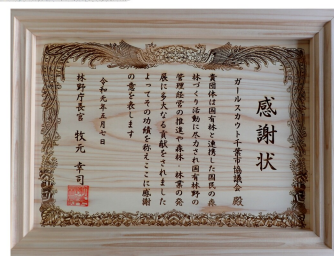 感謝状
ガールスカウト千葉市協議会 殿
貴団体は国有林と連携した国民の森
林づくり活動に尽力され国有林野の
管理経営の推進や森林・林業の発
展に多大なる貢献をされました
よってその功績を称えここに感謝
の意を表します
令和元年五月七日
林野庁長官 牧元 幸司